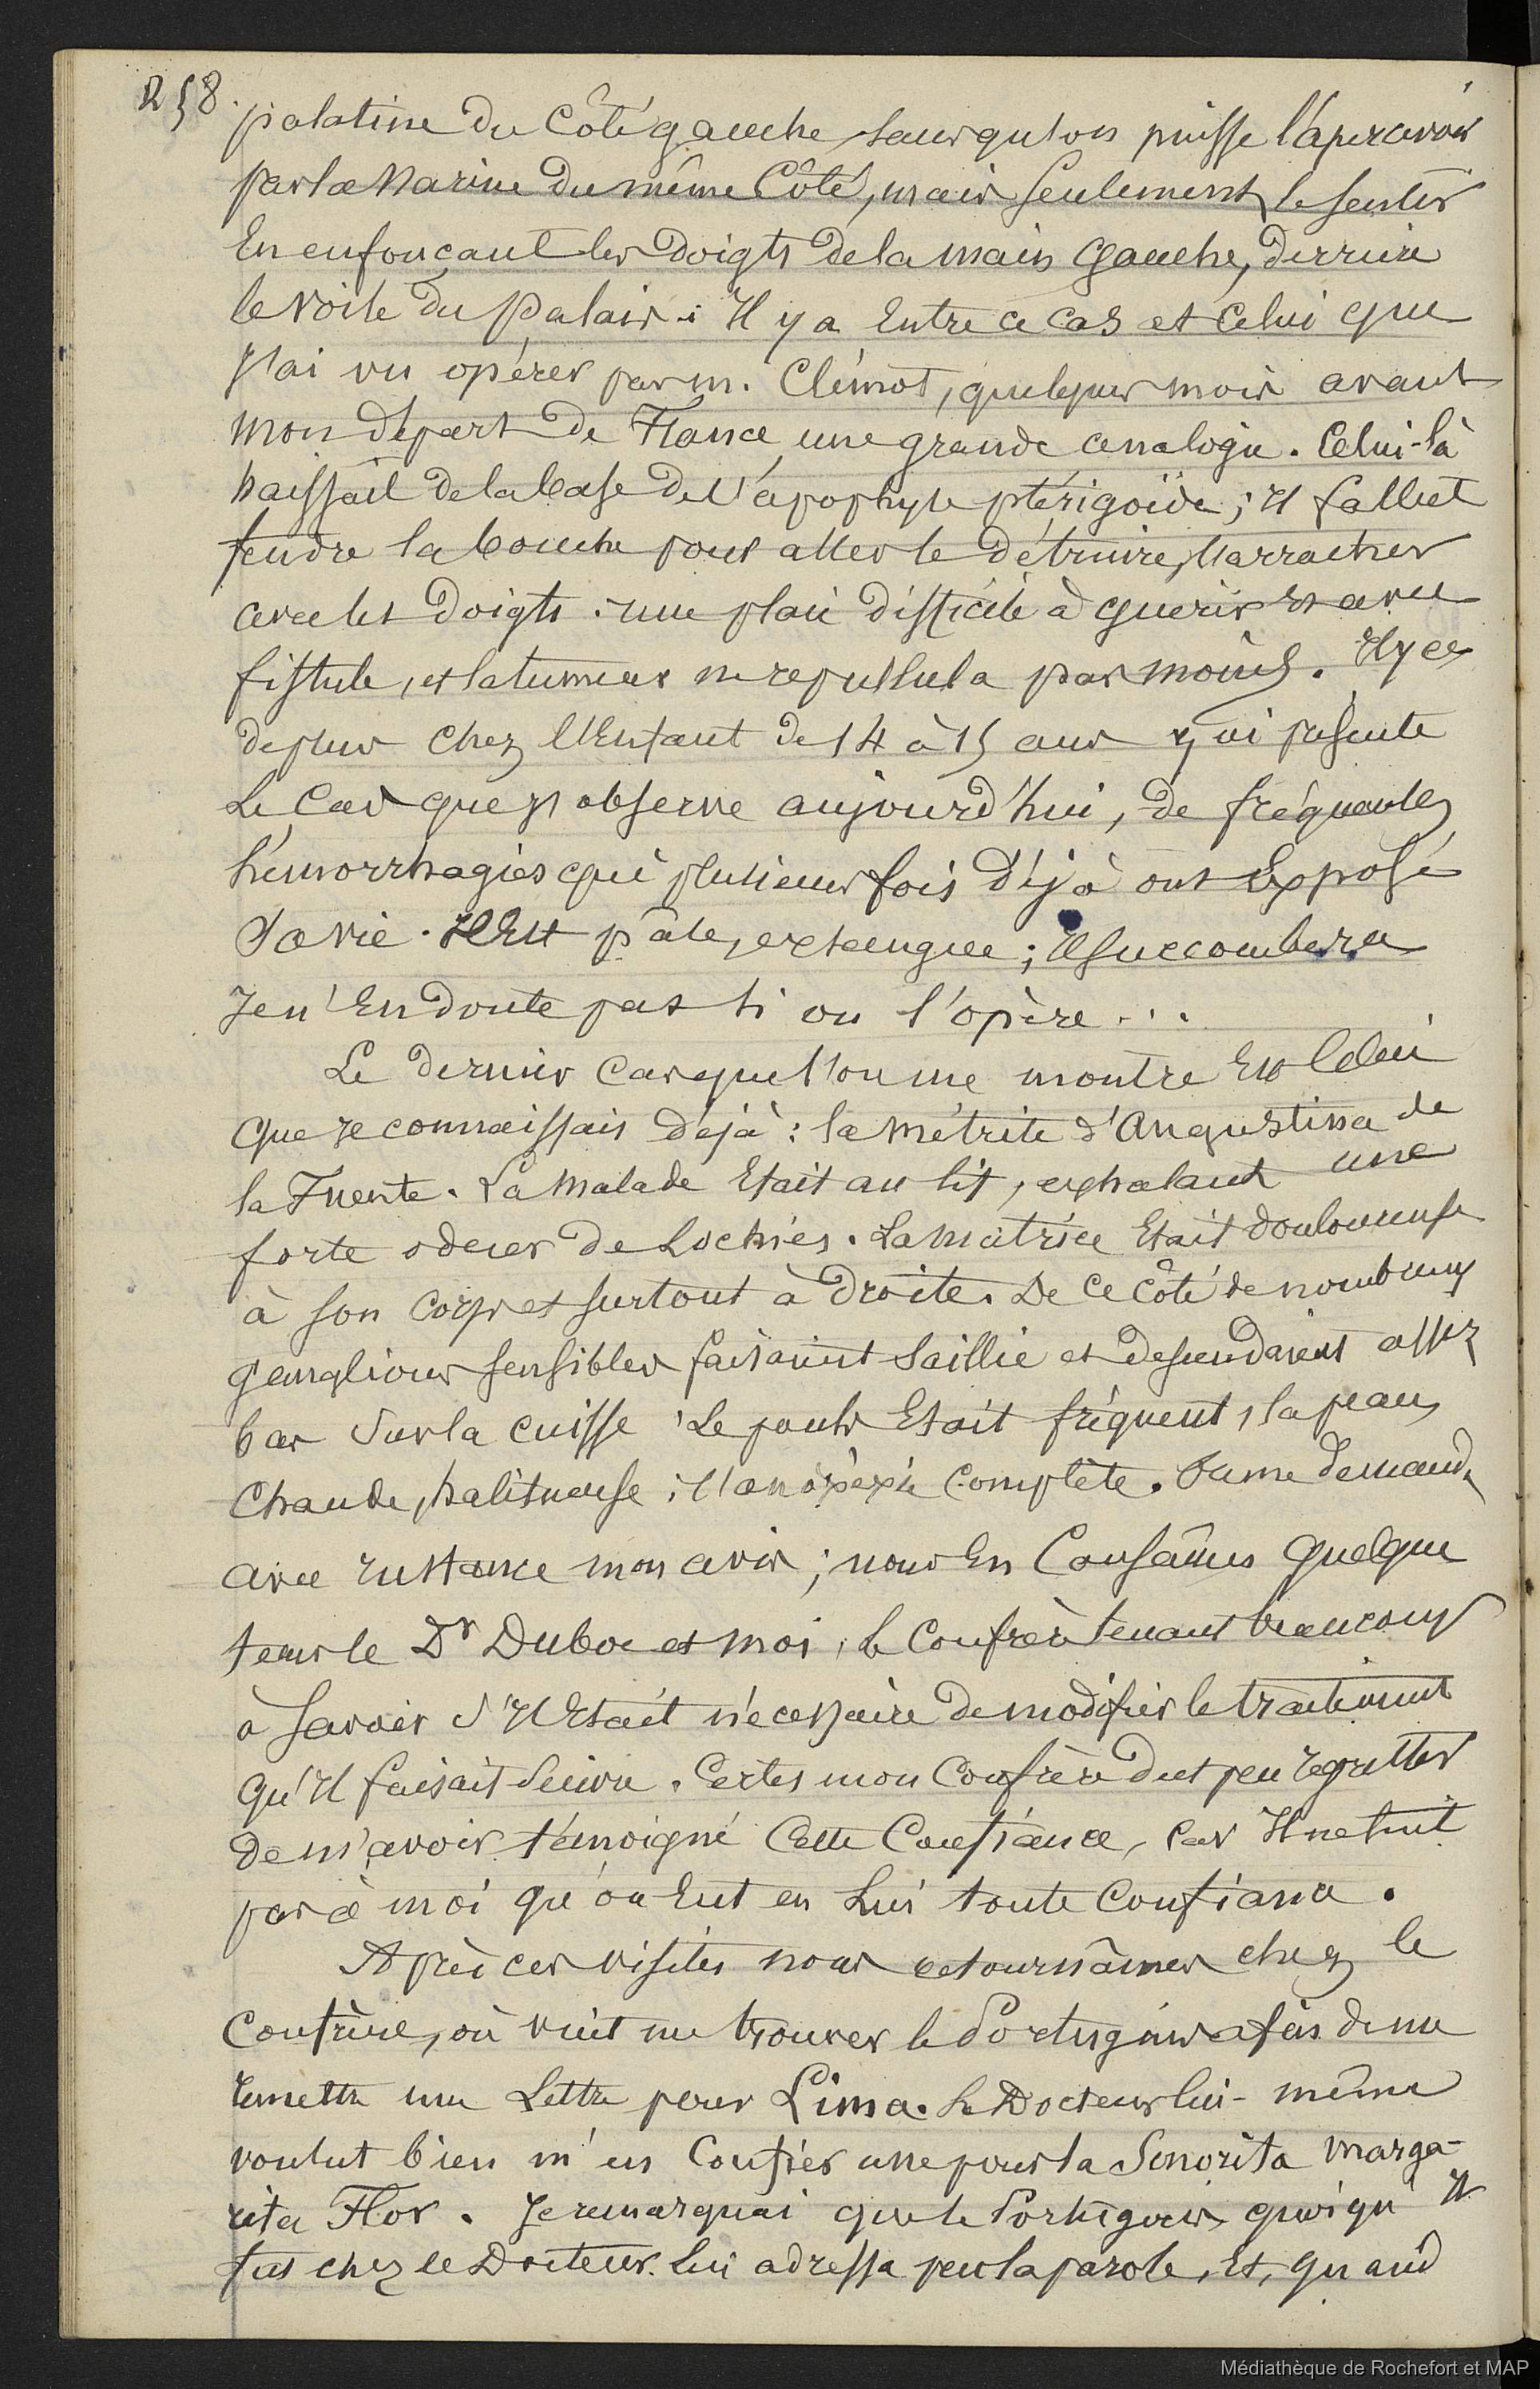 258.
palatine du Côté gauche sans qu'on puisse l'apercevoir
par la narine du même Côté, mais seulement le sentir
En enfonçant les doigts de la main gauche, derrière
le voile du palais. Il y a Entre ce cas et Celui que
J'ai vu opérer par m. Clémot, quelques mois avant
mon départ de France une grande analogie. Celui-là
naissait de la base de l'apophyse ptérigoïde ; Il fallut
fendre la bouche pour aller le détruire, l'arracher
avec les doigts. une plaie difficile à guérir Et avec
fistule, et la tumeur ne repullula pas moins. Il y a
de plus chez l'Enfant de 14 à 15 ans qui présente
Le Cas que J'observe aujourd'hui, de fréquentes
hémorrhagies qui plusieurs fois déjà ont Exposé
Sa vie. Il Est pâle, exsangue ; Il succombera
Je n'En doute pas si on l'opère...
Le dernier cas que l'on me montre Est Celui
que Je connaissais déjà : la métrite d'Angustina de
la Fuente. La malade Etait au lit, exhalant une
forte odeur de Lochies. La matrice Etait douloureuse
à son corps et surtout à droite. De ce côté de nombreux
ganglions sensibles faisaient saillie et descendaient assez
bas sur la cuisse. Le pouls Etait fréquent, la peau
chaude, halitueuse ; l'anoréxie complète. On me demanda
avec Instance mon avis ; nous En Causâmes quelque
tems le Dr Duboc et moi, le Confrère tenant beaucoup
à savoir s'Il Etait nécessaire de modifier le traitement
qu'Il faisait suivre. Certes mon Confrère dut peu regretter
de m'avoir témoigné Cette Confiance, car Il ne tint
pas à moi qu'on Eut en Lui toute Confiance.
Après ces visites nous retournâmes chez le
Confrère, où vint me trouver le Portugais afin de me
remettre une Lettre pour Lima. Le Docteur lui-même
voulut bien m'en Confier une pour la Senorita Marga-
rita Flor. Je remarquai que le Portugais quoiqu'Il
fut chez le Docteur lui adressa peu la parole, Et, quand
Médiathèque de Rochefort et MAP